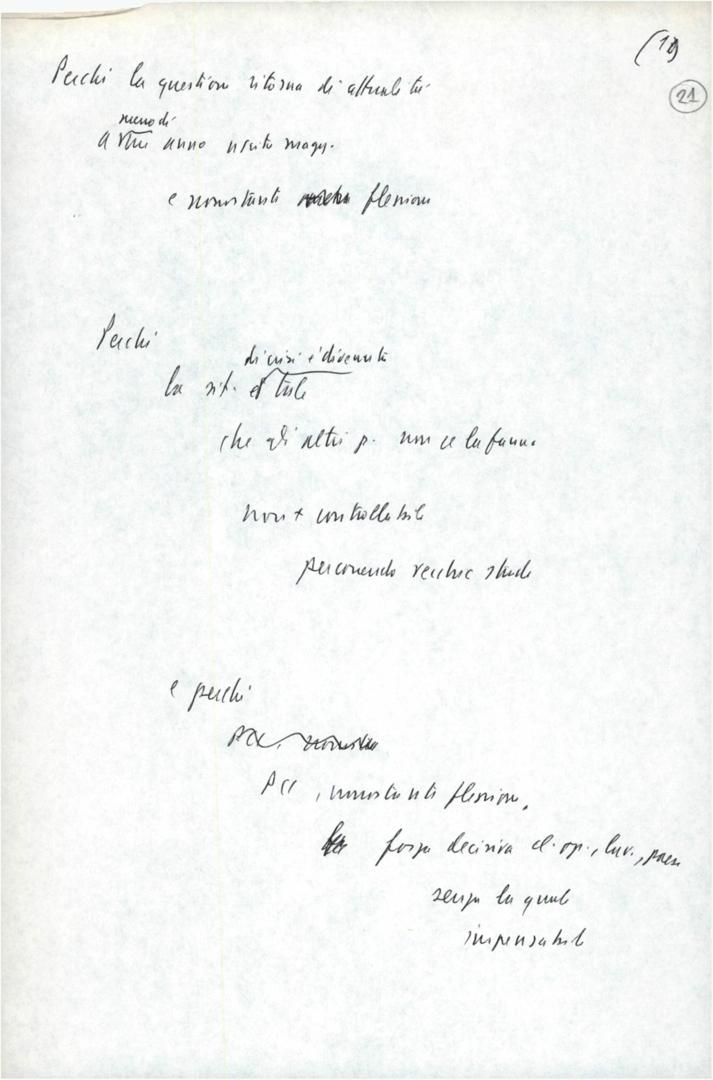 (19)
21
Perché la questione ritorna di attualità
meno di
a anno uscita magg.
e nonostante flessione
Perché
di crisi è divenuta
la sit. è tale
che gli altri p. non ce la fanno
non + controllabile
percorrendo vecchie strade
e perché
PCI, nonostante
PCI, nonostante flessione,
forza decisiva cl. op., lav., paese
senza la quale
impensabile